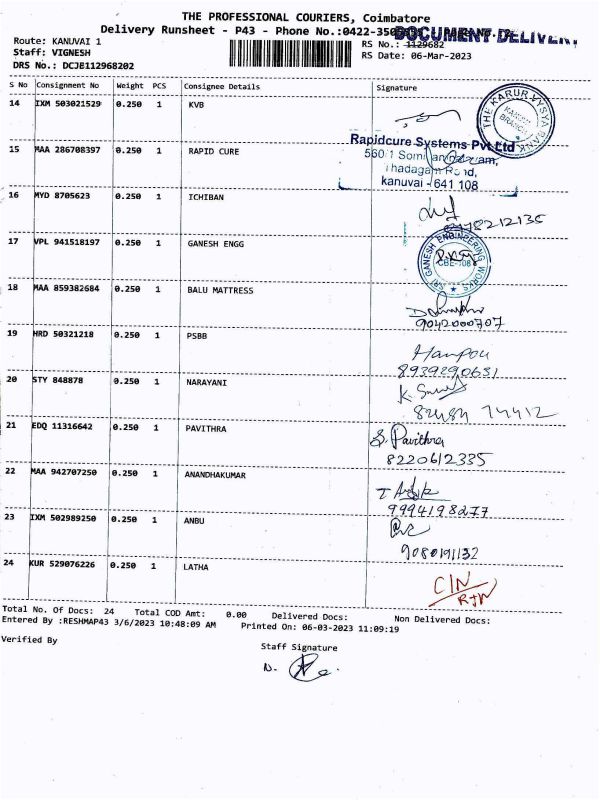 THE PROFESSIONAL COURIERS, Coimbatore
Delivery Runsheet - P43 - Phone No.:0422-350
DOCUMENT DELIVERY
Route: KANUVAI 1
RS No.: 1129682
Staff: VIGNESH
RS Date: 06-Mar-2023
DRS No.: DCJE112968202
S No Consignment No Weight PCS Consignee Details Signature
14 IXM 503021529 0.250 1 KVB
THE KARUR VYSYA BANK
KANUVAI BRANCH
15 MAA 286708397 0.250 1 RAPID CURE
Rapidcure Systems Pvt Ltd
kanuvai - 641 108
16 MYD 8705623 0.250 1 ICHIBAN
17 VPL 941518197 0.250 1 GANESH ENGG
SRI GANESH ENGINEERING WORKS
CBE-108
18 MAA 859382684 0.250 1 BALU MATTRESS
9042000707
19 HRD 50321218 0.250 1 PSBB
8939290651
20 STY 848878 0.250 1 NARAYANI
21 EDQ 11316642 0.250 1 PAVITHRA
S. Pavithra
8220612335
22 MAA 942707250 0.250 1 ANANDHAKUMAR
9994198277
23 IXM 502989250 0.250 1 ANBU
9080191132
24 KUR 529076226 0.250 1 LATHA
CIN
RTN
Total No. Of Docs: 24 Total COD Amt: 0.00 Delivered Docs: Non Delivered Docs:
Entered By :RESHMAP43 3/6/2023 10:48:09 AM Printed On: 06-03-2023 11:09:19
Verified By
Staff Signature